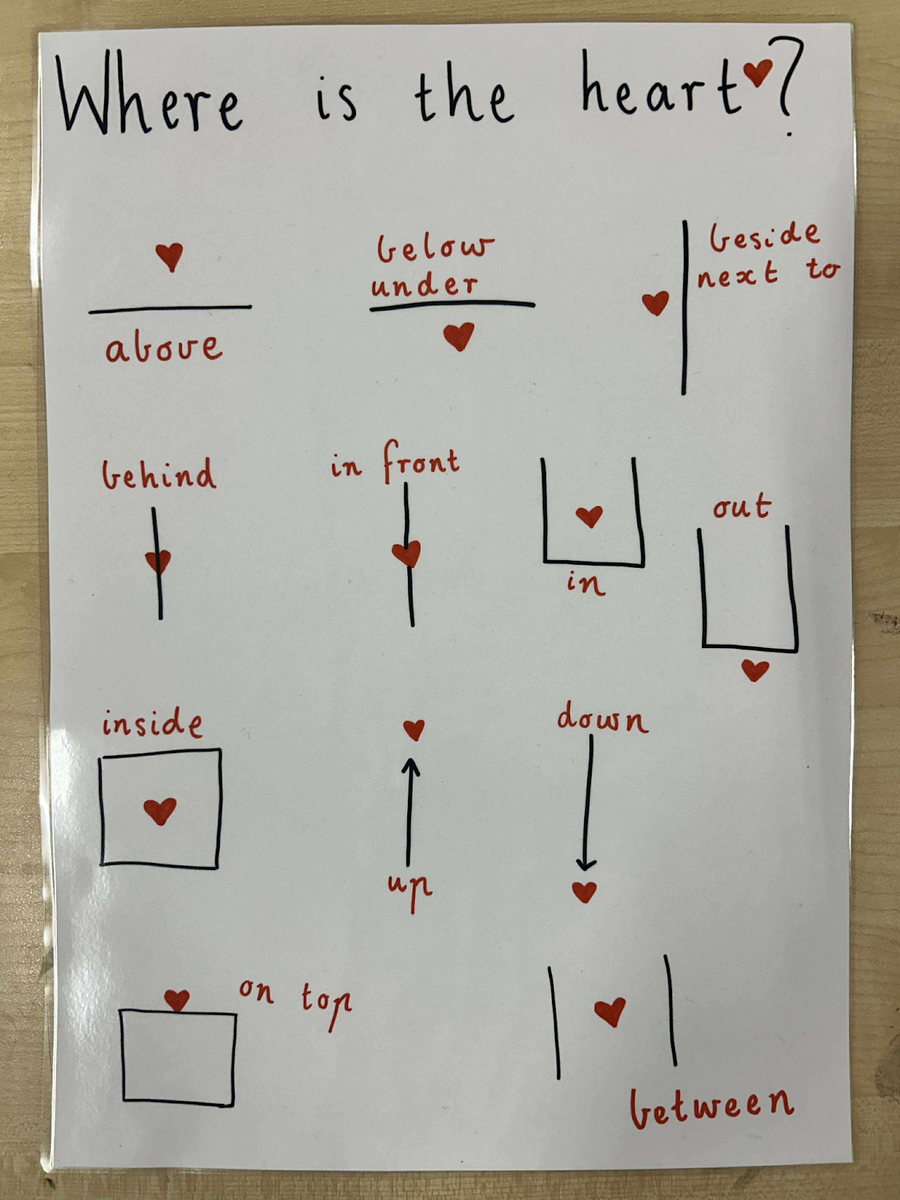 Where is the heart?
above
below
under
beside
next to
behind
in front
in
out
inside
up
down
on top
between